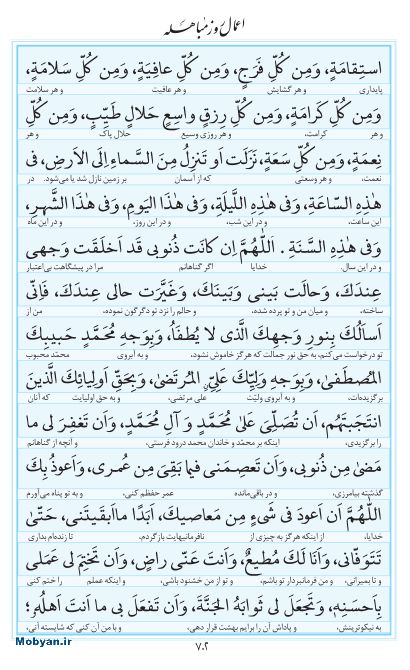 اعمال روز مباهله
استِقامَةٍ، وَمِن كُلِّ فَرَجٍ، وَمِن كُلِّ عافِيَةٍ، وَمِن كُلِّ سَلامَةٍ،
پایداری و هر گشایش و هر عافیت و هر سلامت
وَمِن كُلِّ كَرامَةٍ، وَمِن كُلِّ رِزقٍ واسِعٍ حَلالٍ طَيِّبٍ، وَمِن كُلِّ
و هر کرامت، و هر روزی وسیع حلال پاک و هر
نِعمَةٍ، وَمِن كُلِّ سَعَةٍ، نَزَلَت اَو تَنزِلُ مِنَ السَّماءِ اِلَى الاَرضِ، فى
نعمت، و هر وسعتی که از آسمان بر زمین نازل شد یا می‌شود. در
هٰذِهِ السّاعَةِ، وَفى هٰذِهِ اللَّيلَةِ، وَفى هٰذَا اليَومِ، وَفى هٰذَا الشَّهرِ،
این ساعت، و در این شب، و در این روز، و در این ماه
وَفى هٰذِهِ السَّنَةِ. اَللّٰهُمَّ اِن كانَت ذُنوبى قَد اَخلَقَت وَجهى
و در این سال. خدایا اگر گناهانم مرا در پیشگاهت بی‌اعتبار
عِندَكَ، وَحالَت بَينى وَبَينَكَ، وَغَيَّرَت حالى عِندَكَ، فَاِنّى
ساخته، و میان من و تو پرده شده، و حالم را نزد تو دگرگون نموده، من از
اَساَلُكَ بِنورِ وَجهِكَ الَّذى لا يُطفَاُ، وَبِوَجهِ مُحَمَّدٍ حَبيبِكَ
تو درخواست می‌کنم، به حق نور جمالت که هرگز خاموش نشود، و به آبروی محمّد محبوب
المُصطَفىٰ، وَبِوَجهِ وَلِيِّكَ عَلِىٍّ المُرتَضىٰ، وَبِحَقِّ اَولِيائِكَ الَّذينَ
برگزیده‌ات، و به آبروی ولیّت علی مرتضی، و به حق اولیایت که آنان
انتَجَبتَهُم، اَن تُصَلِّىَ عَلىٰ مُحَمَّدٍ وَ آلِ مُحَمَّدٍ، وَاَن تَغفِرَ لى ما
را برگزیدی، اینکه بر محمّد و خاندان محمد درود فرستی، و آنچه از گناهانم
مَضىٰ مِن ذُنوبى، وَاَن تَعصِمَنى فيما بَقِىَ مِن عُمرى، وَاَعوذُ بِكَ
گذشته بیامرزی، و در باقی‌مانده عمر حفظم کنی، و به تو پناه می‌آورم
اللّٰهُمَّ اَن اَعودَ فى شَىءٍ مِن مَعاصيكَ، اَبَدًا ما اَبقَيتَنى، حَتّىٰ
خدایا، از اینکه هرگز به چیزی از نافرمانیهایت بازگردم، تا زنده‌ام بداری
تَتَوَفّانى، وَاَنَا لَكَ مُطيعٌ، وَاَنتَ عَنّى راضٍ، وَاَن تَختِمَ لى عَمَلى
و تا بمیرانی، و من فرمانبردار تو باشم، و تو از من خشنود باشی، و اینکه عملم را ختم کنی
بِاَحسَنِهِ، وَتَجعَلَ لى ثَوابَهُ الجَنَّةَ، وَاَن تَفعَلَ بى ما اَنتَ اَهلُهُ؛
به نیکوترینش، و پاداش آن را برایم بهشت قرار دهی، و با من آن کنی که شایسته آنی،
۷۰۲
Mobyan.ir